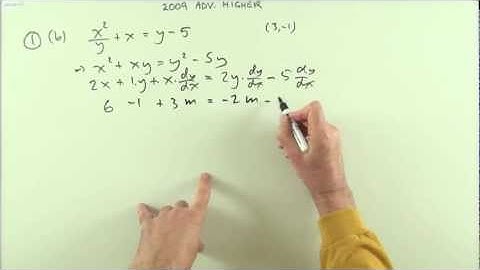 2009 ADV. HIGHER
① (b) x²/y + x = y - 5 (3,-1)
⇒ x² + xy = y² - 5y
2x + 1.y + x.dy/dx = 2y.dy/dx - 5 dy/dx
6 -1 + 3m = -2m -